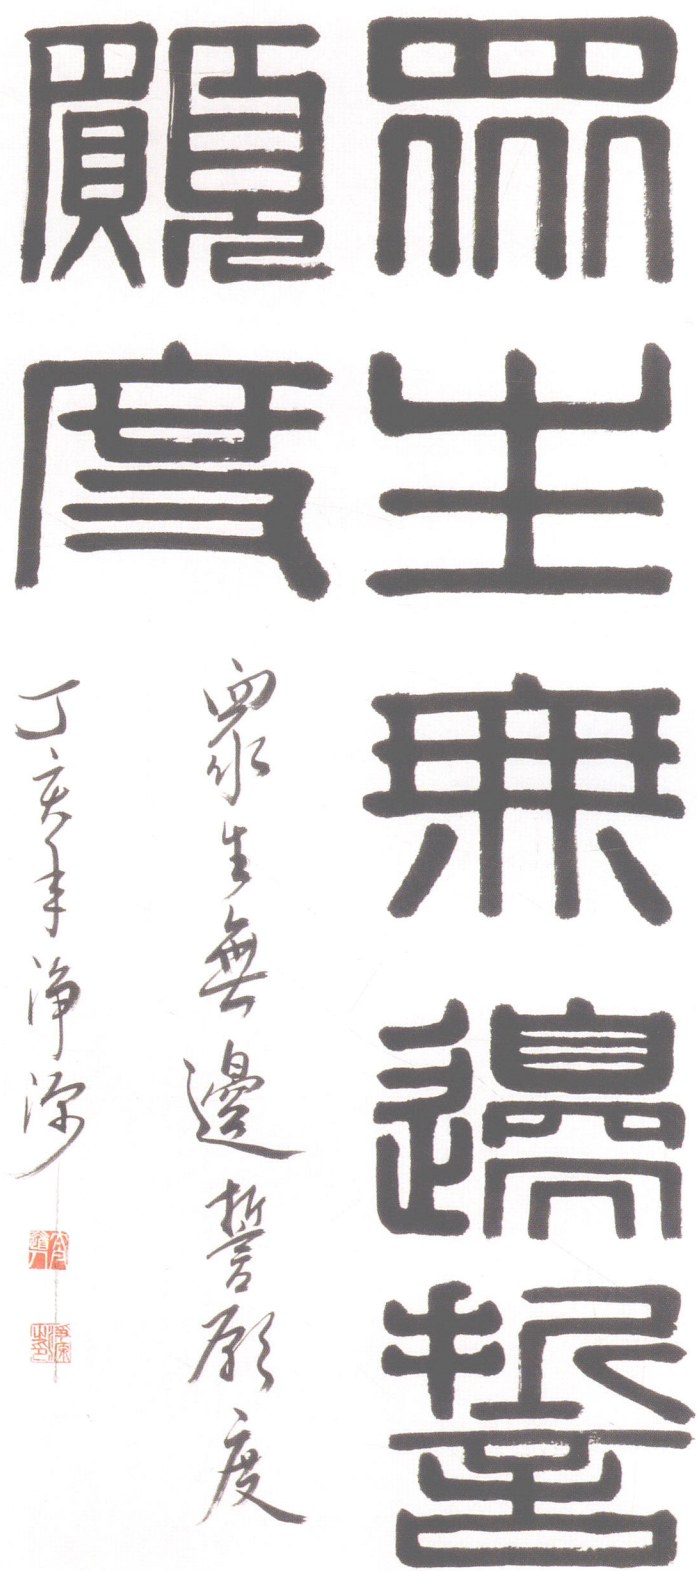 眾生無邊誓
願度
眾生無邊誓願度
丁亥年淨源